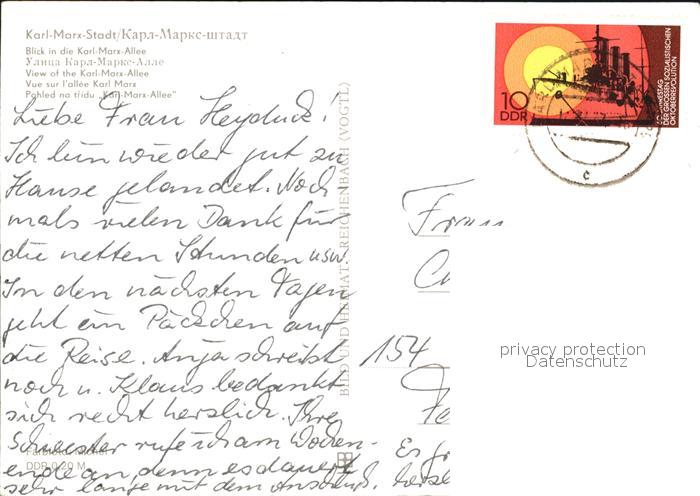 Karl-Marx-Stadt/Карл-Маркс-штадт
Blick in die Karl-Marx-Allee
Улица Карл-Маркс-Алле
View of the Karl-Marx-Allee
Vue sur l'allée Karl Marx
Pohled na třídu „Karl-Marx-Allee"
Liebe Frau Heyduck!
Ich bin wieder gut zu
Hause gelandet. Noch
mals vielen Dank für
die netten Stunden usw.
In den nächsten Tagen
geht ein Päckchen auf
die Reise. Anja schreibt
noch u. Klaus bedankt
sich recht herzlich. Ihre
Schwester rufe ich am Wochen-
ende an, denn es dauert
sehr lange mit dem Anschluß.
DDR 0,20 M
BILD UND HEIMAT REICHENBACH (VOGTL)
10
DDR
60. JAHRESTAG
DER GROSSEN SOZIALISTISCHEN
OKTOBERREVOLUTION
c
Frau
154
Es
privacy protection
Datenschutz